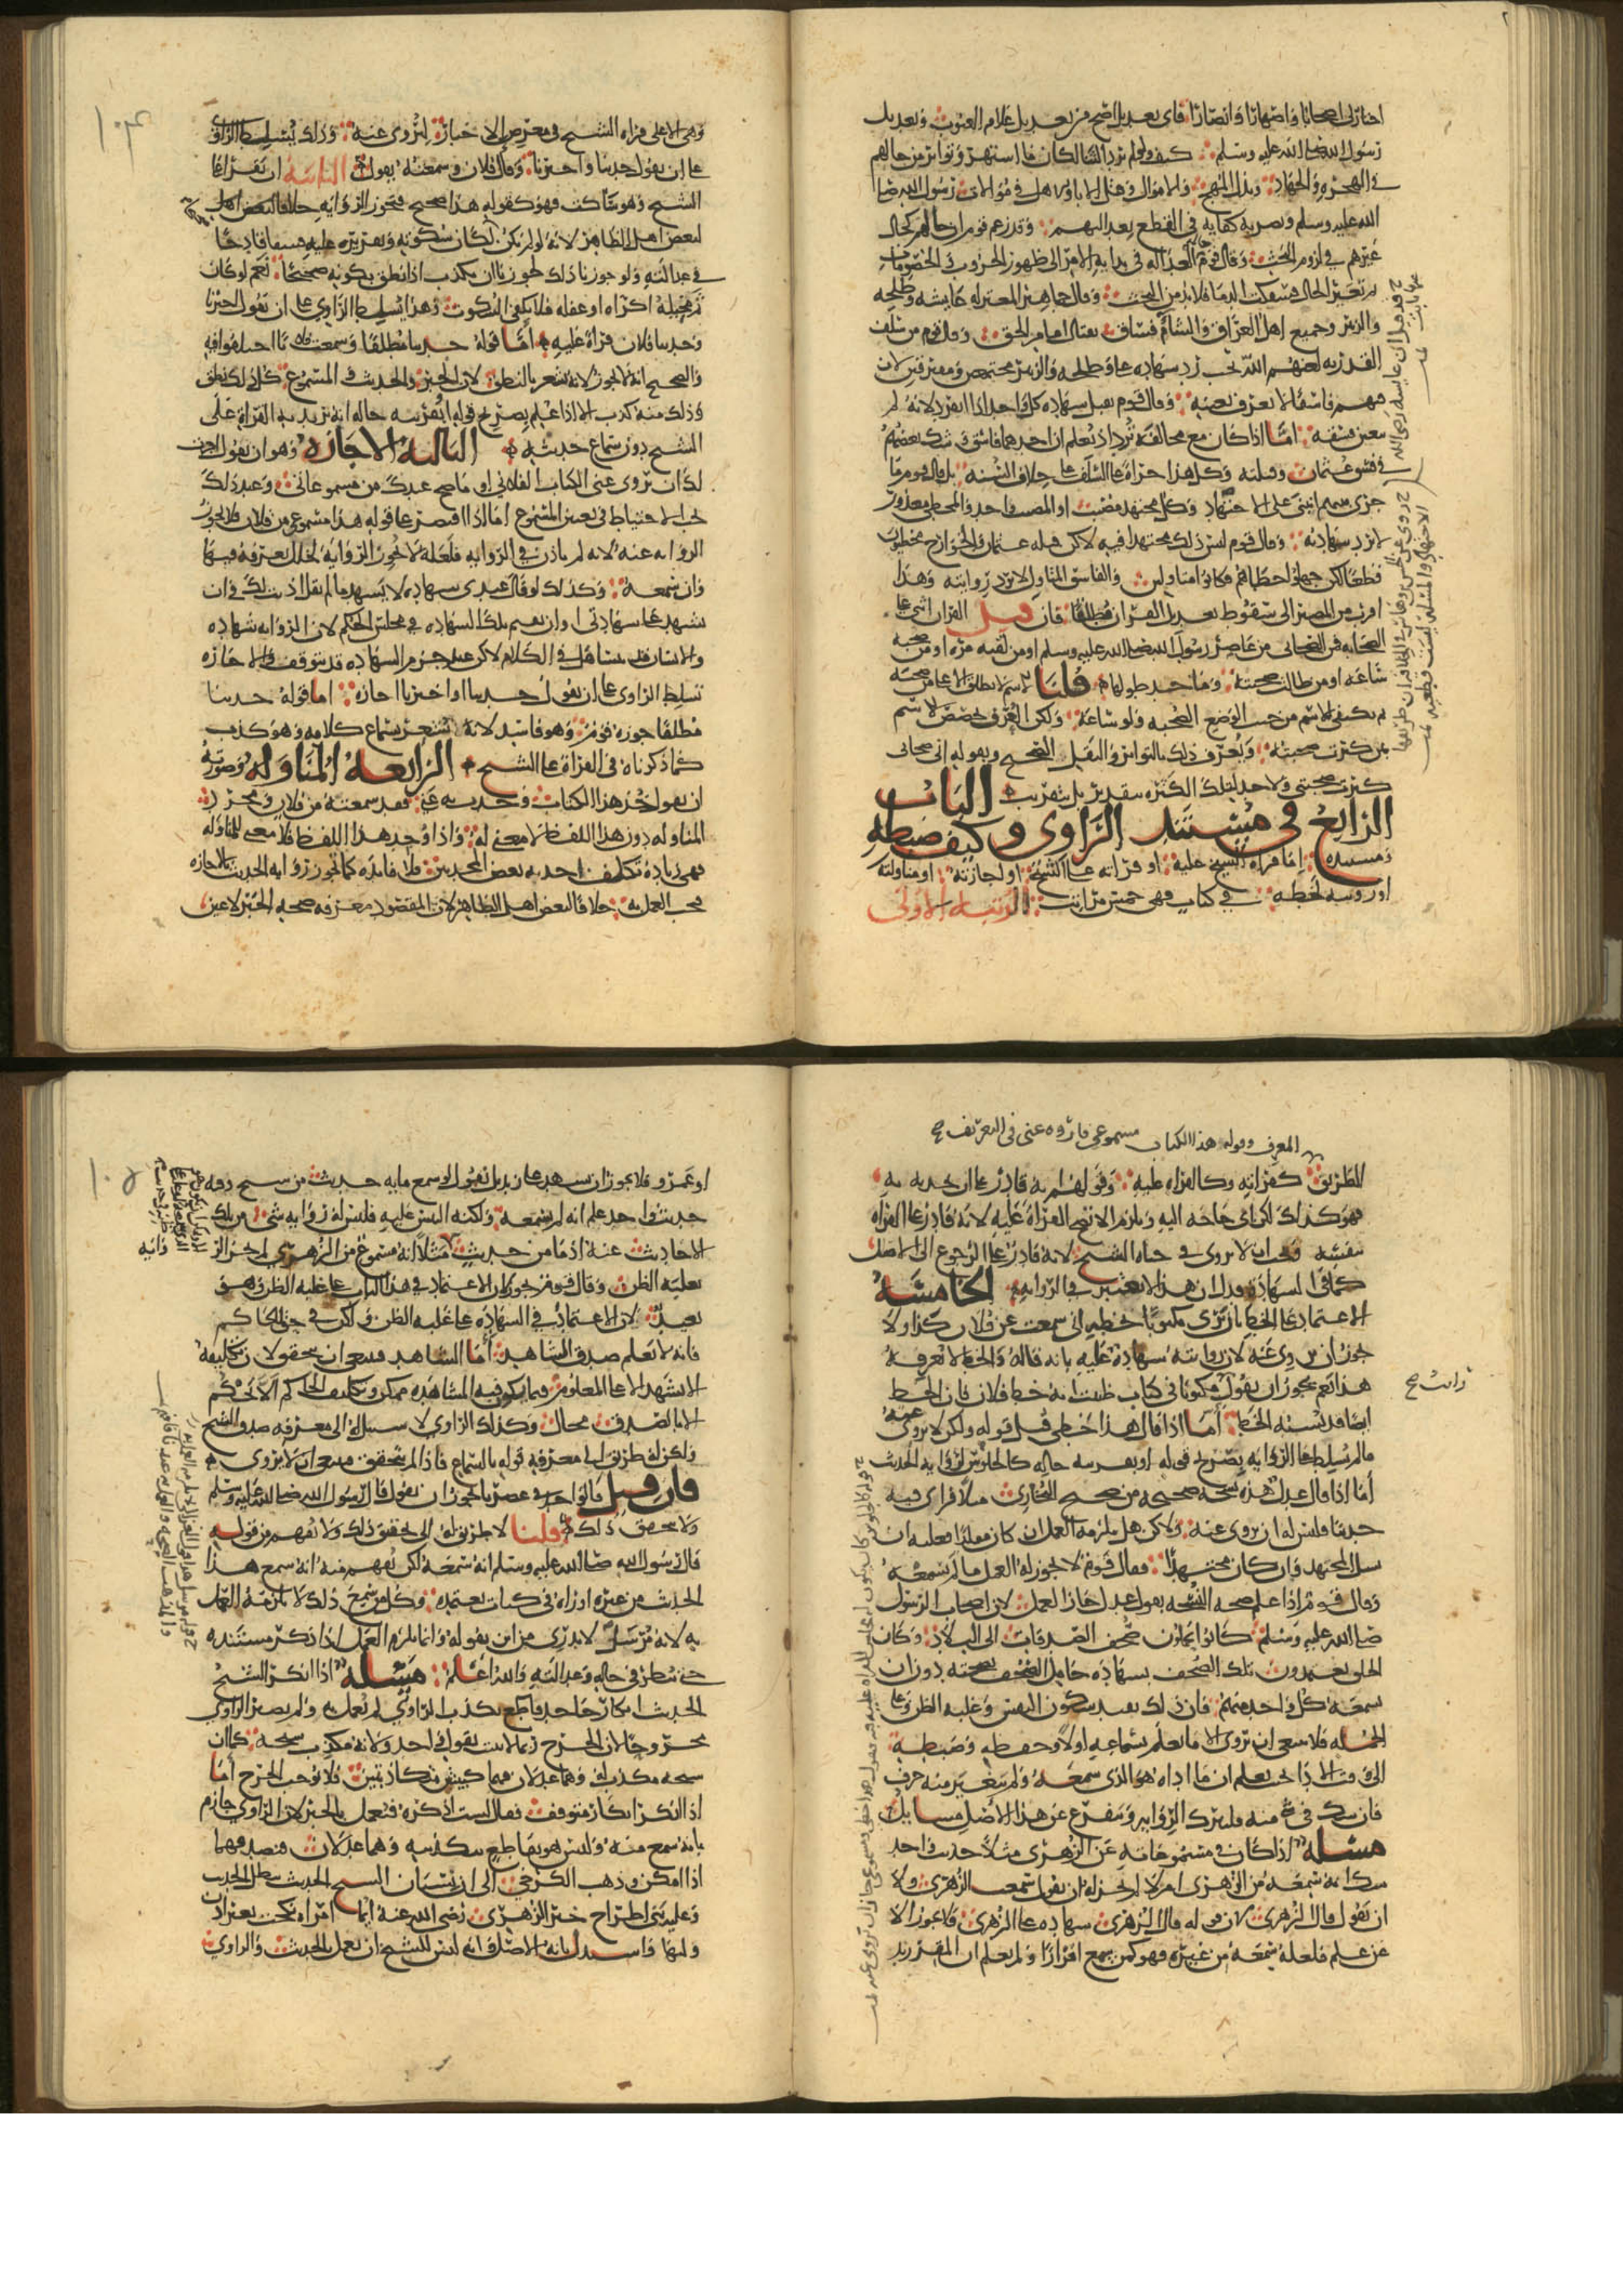 اختارك اصحابا واصهارا وانصارا فاي تعديل اصح من تعديل علام الغيوب وتعديل
رسول الله صلى الله عليه وسلم كيف ولو لم يرد الثنا لكان فيما اشتهر وتواتر من حالهم
في الهجره والجهاد وبذل المهج والاموال وقتل الاباء والاهل في موالاة رسول الله صلى
الله عليه وسلم ونصرته كفايه في القطع بعدالتهم وقد زعم قوم ان حالهم كحال
غيرهم في لزوم البحث وقال قوم حالهم العداله في بداية الامر الى ظهور الحروب والخصومات
ثم تغير الحال وسفكت الدما فلا بد من البحث وقال جماهير المعتزله عايشه وطلحه
والزبير وجميع اهل العراق والشام فساق بقتال امام الحق وقال قوم من سلف
القدريه لعنهم الله تجب رد شهاده علي وطلحه والزبير مجتمعين ومفترقين لان
فيهم فاسقا لا نعرف بعينه وقال قوم نقبل شهاده كل واحد اذا انفرد لانه لم
يتعين فسقه اما اذا كان مع مخالفه ترد اذ نعلم ان احدهما فاسق وشك بعضهم
في فسق عثمان وقتلته وكل هذا جراة على السلف على خلاف السنه بل قال قوم ما
جرى بينهم ابتنى على الاجتهاد وكل مجتهد مصيب او المصيب واحد والمخطي معذور
لا ترد شهادته وقال قوم ليس ذلك مجتهدا فيه لاكن قتله عثمان والخوارج مخطيون
قطعا لكن جهلوا خطاهم فكانوا متاولين والفاسق المتاول لا ترد روايته وهذا
اقرب من المصير الى سقوط تعديل القران مطلقا فان قيل القران اثنى على
الصحابه فمن الصحابي من عاصر رسول الله صلى الله عليه وسلم او من لقيه مره او من صحبه
ساعه او من طالت صحبته وما حد طولها قلنا الاسم لا يطلق الا على من صحبه
ثم يكفي الاسم من حيث الوضع الصحبه ولو ساعه ولكن العرف يخصص الاسم
بمن كثرت صحبته ويعرف ذلك بالتواتر والنقل الصحيح وبقوله اني صحابي
كثرت صحبتي ولا حد لتلك الكثره بتقدير بل بتقريب الباب
الرابع في مستند الراوي وكيف ضبطه
ومستنده اما قراة الشيخ عليه او قراته على الشيخ او اجازته او مناولته
او رويته بخطه في كتاب فهي خمس مراتب المرتبه الاولى
١٠٤
وهي الاعلى قراه الشيخ في معرض الاخبار ليروى عنه وذلك يسلط الراوي
على ان يقول حدثنا واخبرنا وقال فلان وسمعته يقول الثانيه ان يقرا على
الشيخ وهو ساكت فهو كقوله هذا صحيح فتجوز الروايه خلافا لبعض اهل
لبعض اهل الظاهر لانه لو لم يكن لكان سكوته وتقريره عليه فسقا قادحا
في عدالته ولو جوزنا ذلك لجوزنا ان يكذب اذا نطق بكونه صحيحا نعم لو كان
ثم مخيله اكراه او غفله فلا يكفي السكوت وهذا يسلط الراوي على ان يقول اخبرنا
وحدثنا فلان قراة عليه اما قوله حدثنا مطلقا وسمعت فلانا اختلفوا فيه
والصحيح انه لا يجوز لانه يشعر بالنطق لان الخبر والحديث والمسموع كل ذلك نطق
وذلك منه كذب الا اذا علم بصريح قوله او بقرينه حاله انه يريد به القراة على
الشيخ دون سماع حديثه الثالثه الاجازه وهو ان يقول اجزت
لك ان تروي عني الكتاب الفلاني او ما صح عندك من مسموعاتي وعند ذلك
يجب الاحتياط في تعيين المسموع اما اذا اقتصر على قوله هذا مسموعي من فلان فلا يجوز
الروايه عنه لانه لم ياذن في الروايه فلعله لا يجوز الروايه لخلل يعرفه فيها
وان سمعه وكذلك لو قال عندي شهاده لا يشهد ما لم يقل اذنت لك في ان
تشهد على شهادتي او ان يقيم تلك الشهاده في مجلس الحكم لان الروايه شهاده
والانسان قد يتساهل في الكلام لاكن عند جزم الشهاده قد يتوقف والاجازه
تسلط الراوي على ان يقول حدثنا او اخبرنا اجازه اما قوله حدثنا
مطلقا جوزه قوم وهو فاسد لانه يشعر بسماع كلامه وهو كذب
كما ذكرناه في القراة على الشيخ الرابعه المناوله وصورته
ان يقول خذ هذا الكتاب وحدث به عني فقد سمعته من فلان ومجرد
المناوله دون هذا اللفظ لا معنى له واذا وجد هذا اللفظ فلا معنى للمناوله
فهي زياده تكلف احدثه بعض المحدثين فلا فايده كما تجوز روايه الحديث بالاجازه
يجب العمل به خلافا لبعض اهل الظاهر لان المقصود معرفه صحه الخبر لا عين
المعرف وقوله هذا الكتاب مسموعي فاروه عني في التعريف صح
الطريق كقراته وكالقراه عليه وقولهم انه قادر على ان يحدثه به
فهو كذلك لكن اي حاجه اليه ويلزم الا تصح القراة عليه لانه قادر على القراه
بنفسه ويجب ان لا يروى في حياه الشيخ لانه قادر على الرجوع الى الاصل
كما في الشهاده فدل ان هذا لا يعتبر في الروايه الخامسه
الاعتماد على الخط بان يرى مكتوبا بخطه اني سمعت عن فلان كذا ولا
يجوز ان يروي عنه لان روايته شهاده عليه بانه قاله والخط لا يعرفه
هذا نعم يجوز ان يقول مكتوبا في كتاب ظننت انه خط فلان فان الخط
رايت صح
ايضا قد يشبه الخط اما اذا قال هذا خطي قبل قوله ولكن لا يروي عنه
ما لم يسلطه على الروايه بصريح قوله او بقرينه حاله كالجلوس لروايه الحديث
اما اذا قال عدل هذه نسخه صحيحه من صحيح البخاري مثلا فراى فيه
حديثا فليس له ان يروي عنه ولاكن هل يلزمه العمل ان كان مقلدا فعليه ان
يسل المجتهد وان كان مجتهدا فقال قوم لا يجوز له العمل ما لم يسمعه
وقال قوم اذا علم صحه النسخه بقول عدل جاز العمل لان اصحاب الرسول
صلى الله عليه وسلم كانوا يحملون صحف الصدقات الى البلاد وكان
الخلق يعتمدون تلك الصحف بشهاده حامل الصحف بصحته دون ان
يسمعه كل واحد منهم فان ذلك يفيد سكون النفس وغلبه الظن وعلى
الجمله فلا ينبغي ان يروي الا ما يعلم سماعه اولا وحفظه وضبطه
الى وقت الاداء بحيث يعلم ان ما اداه هو الذي سمعه ولم يتغير منه حرف
فان شك في شي منه فليترك الروايه ويتفرع عن هذا الاصل مسايل
مسئله اذا كان في مسموعاته عن الزهري مثلا حديث واحد
شك انه سمعه من الزهري ام لا لم يجز له ان يقول سمعت الزهري ولا
ان يقول قال الزهري لان قوله قال الزهري شهاده على الزهري فلا يجوز الا
عن علم فلعله سمعه من غيره فهو كمن سمع اقرارا ولم يعلم ان المقر زيد
١٠٥
او عمرو فلا يجوز ان يشهد على زيد بل نقول لو سمع مايه حديث من شيخ وفيه
حديث واحد علم انه لم يسمعه ولكنه التبس عليه فليس له روايه شي من تلك
الاحاديث عنه اذ ما من حديث مثلا انه مسموع من الزهري لم يجز الروايه
بغلبه الظن وقال قوم يجوز لان الاعتماد في هذا الباب على غلبه الظن وهو
بعيد لان الاعتماد في الشهاده على غلبه الظن ولكن في حق الحاكم
فانه لا يعلم صدق الشاهد اما الشاهد فينبغي ان يتحقق لان تكليفه
الا يشهد الا على المعلوم فيما يمكن فيه المشاهده ممكن وتكليف الحاكم الا يحكم
الا بالصدق محال وكذلك الراوي لا سبيل له الى معرفه صدق الشيخ
ولكن له طريق الى معرفه قوله بالسماع فاذا لم يتحقق فينبغي ان لا يروي
فان قيل فالواحد في عصرنا يجوز ان يقول قال رسول الله صلى الله عليه وسلم
ولا يتحقق ذلك قلنا لا طريق له الى تحقق ذلك ولا يفهم من قوله
قال رسول الله صلى الله عليه وسلم انه سمعه لكن يفهم منه انه سمع هذا
الحديث من غيره او راه في كتاب يعتمده وكل من سمع ذلك لا يلزمه العمل
به لانه مرسل لا يدري من اين يقوله وانما يلزم العمل اذا ذكر مستنده
حتى ينظر في حاله وعدالته والله اعلم مسئله اذا انكر الشيخ
الحديث انكار جاحد قاطع بكذب الراوي لم يعمل به ولم يصر الراوي
مجروحا لان الجرح ربما لا يثبت بقول واحد ولانه مكذب شيخه كما ان
شيخه مكذب له وهما عدلان فهما كبينتين متكاذبتين فلا يوجب الجرح اما
اذا انكر انكار متوقف فقال لست اذكره فنعمل بالخبر لان الراوي جازم
بانه سمع منه وليس هو بقاطع بتكذيبه وهما عدلان فتصديقهما
اذا امكن وذهب الكرخي الى ان نسيان الشيخ الحديث يبطل الحديث
وعليه بنى اطراح خبر الزهري رضي الله عنه ايما امراه نكحت بغير اذن
وليها واستدل بانه الاصل وانه ليس للشيخ ان يعمل بالحديث والراوي